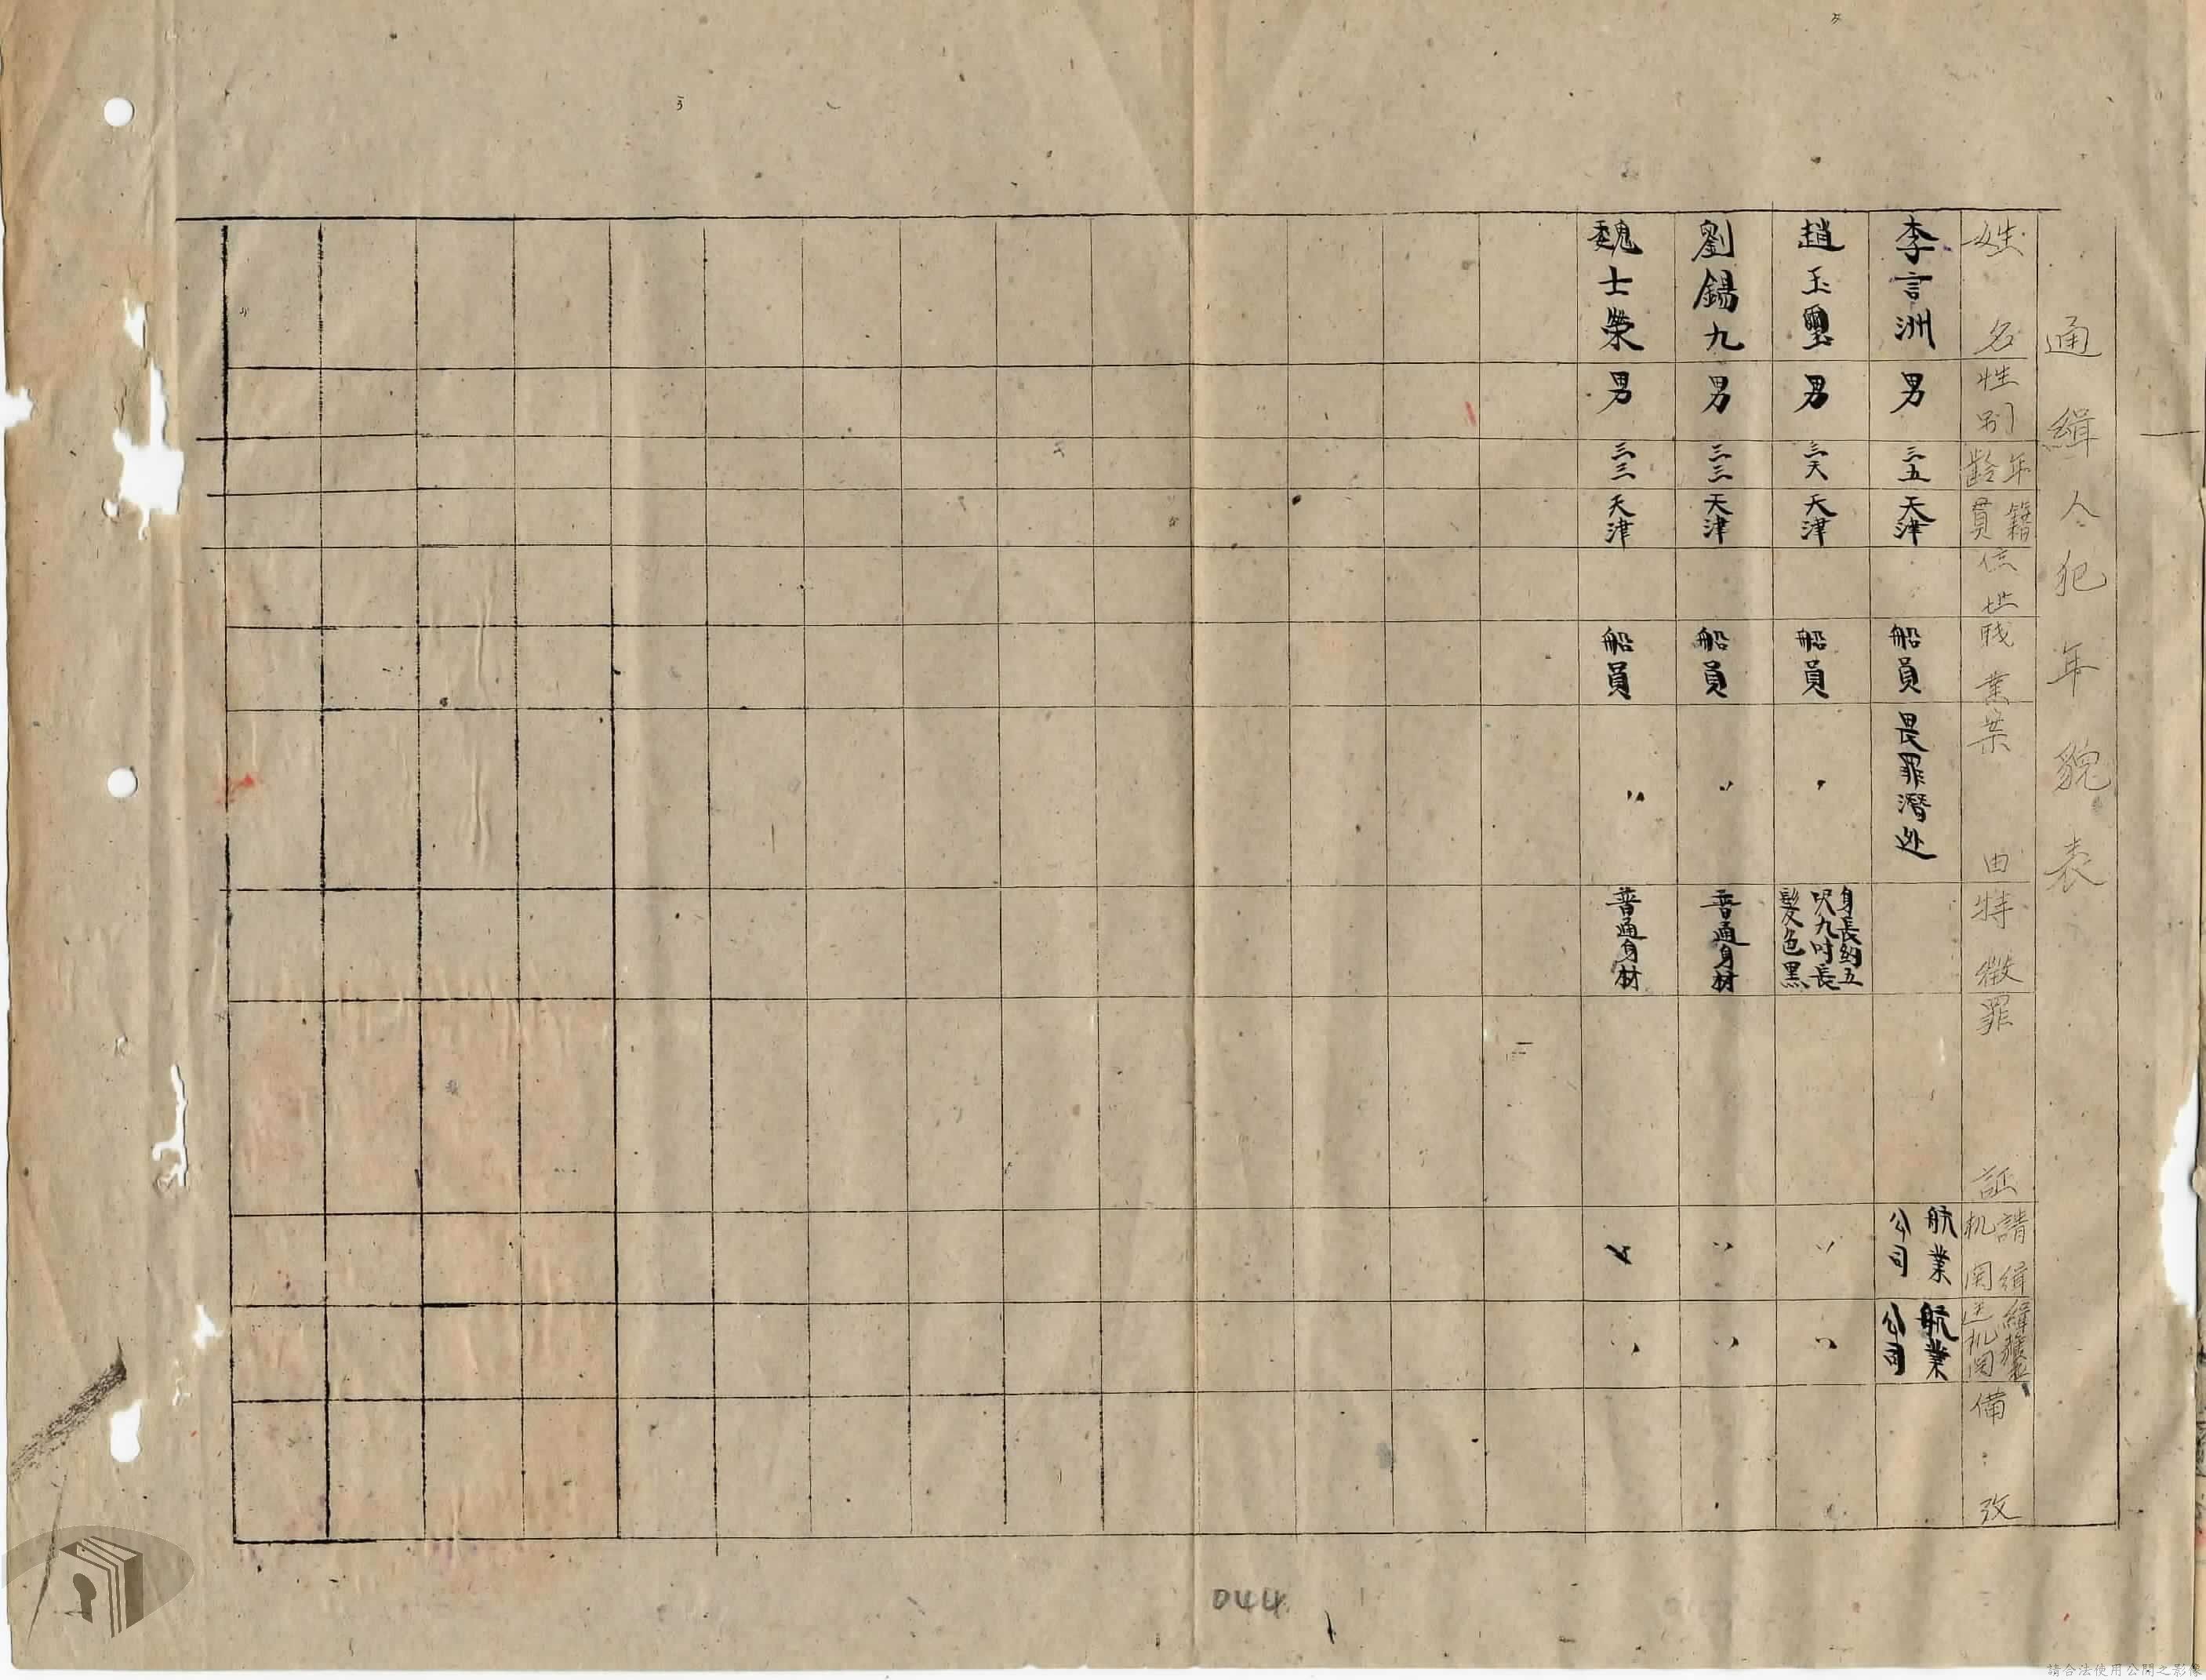 通緝人犯年貌表
姓名
性別
年齡
籍貫
住址
職業
案由
特徵
罪証
請緝机関
緝獲送机関
備攷
李言洲
男
三五
天津
船員
畏罪潛逃
航業公司
航業公司
趙玉璽
男
天津
船員
〃
身長約五
呎九吋長
髮色黑
〃
〃
劉錫九
男
三三
天津
船員
〃
普通身材
〃
〃
魏士榮
男
三三
天津
船員
〃
普通身材
〃
〃
044
請合法使用公開之影像